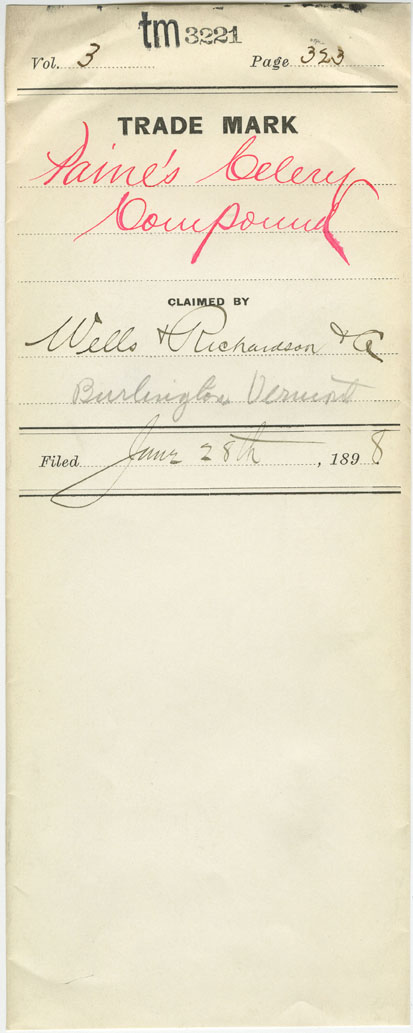 tm 3221
Vol. 3 Page 323
TRADE MARK
Paine's Celery
Compound
CLAIMED BY
Wells & Richardson & Co
Burlington Vermont
Filed June 28th, 1898